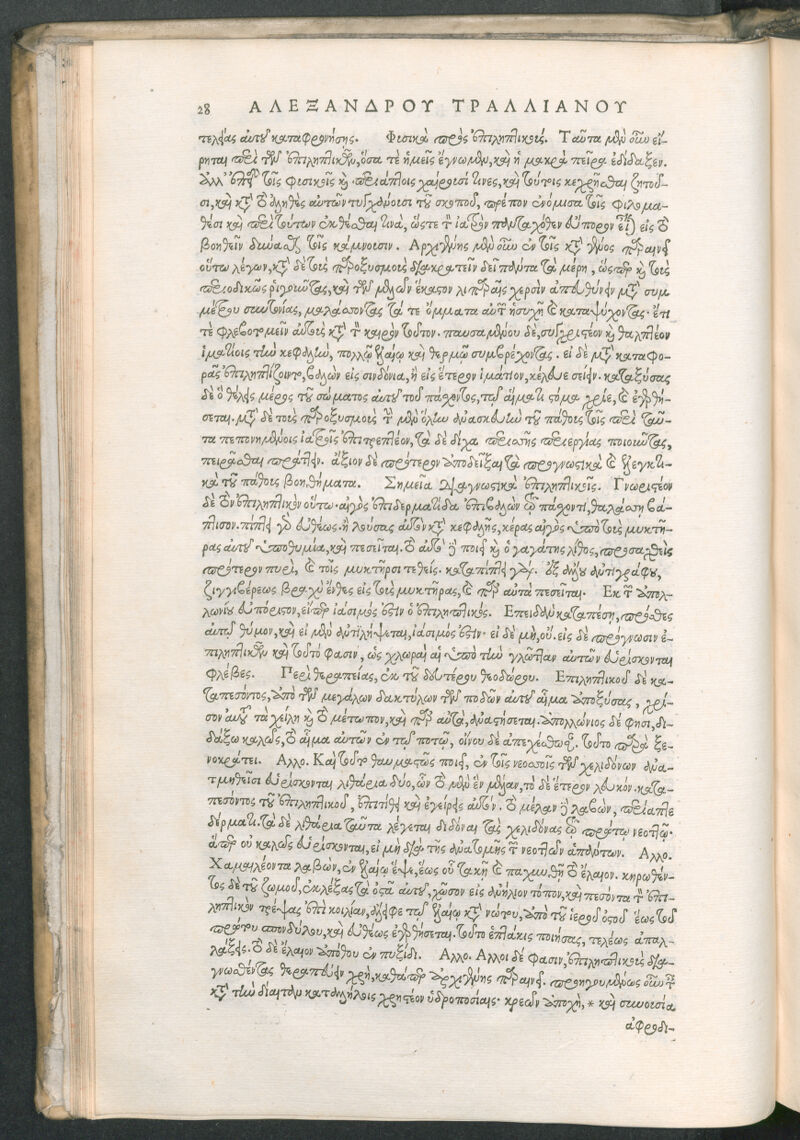 28 ΑΛΕΞΑΝΔΡΟΥ ΤΡΑΛΛΙΑΝΟΥ
τελείας αὐτοῦ καταφρονήσῃς. Φυσικὰ πρὸς ἐπιληπτικούς. Ταῦτα μὲν οὖν εἴ-
ρηται περὶ τῶν ἐπιληπτικῶν, ὅσα τε ἡμεῖς ἔγνωμεν, καὶ ἡ μακρὰ πεῖρα ἐδίδαξεν.
ἀλλ' ἐπεὶ τοῖς φυσικοῖς καὶ περιάπτοις χαίρουσί τινες, καὶ τούτοις κεχρῆσθαι ζητοῦ-
σι, καὶ κατὰ τὸ ἀληθὲς αὐτῶν τυγχάνουσι τοῦ σκοποῦ, πρέπον ἐνόμισα τοῖς φιλομα-
θέσι καὶ περὶ τούτων ἐκθέσθαι τινὰ, ὥστε τὸν ἰατρὸν πανταχόθεν εὔπορον εἶναι εἰς τὸ
βοηθεῖν δύνασθαι τοῖς κάμνουσιν. Ἀρχιγένης μὲν οὖν ἐν τοῖς κατὰ γένος παραινεῖ
οὕτω λέγων, κατὰ δὲ τοὺς παροξυσμοὺς διακρατεῖν δεῖ πάντα τὰ μέρη, ὥσπερ καὶ τοὺς
περιοδικῶς ῥιγοῦντας, καὶ τῶν μελῶν ἕκαστον λιπαραῖς χερσὶν ἀπευθύνειν μετὰ συμ-
μέτρου συντονίας, μαλάσσοντας τά τε ὄμματα αὐτῶν ἡσυχῆ καὶ καταψύχοντας· ἔτι
τε φλεβοτομεῖν αὐτοὺς κατὰ τὸν καιρὸν τοῦτον. παυσαμένου δὲ, συγχριστέον καὶ θαλπτέον
ἱματίοις τὴν κεφαλὴν, πολλῷ ἐλαίῳ καὶ θερμῷ συμβρέχοντας. εἰ δὲ μετὰ καταφο-
ρᾶς ἐπιληπτίζοιντο, βαλὼν εἰς σινδόνια, ἢ εἰς ἕτερον ἱμάτιον, κέλευε σείειν. καταξύσας
δὲ ὃ θέλεις μέρος τοῦ σώματος αὐτοῦ τοῦ πάσχοντος, τῷ αἵματι στόμα χρῖε, καὶ ἐγερθή-
σεται. μετὰ δὲ τοὺς παροξυσμοὺς τὴν μὲν ὅλην ἀνασκευὴν τοῦ πάθους τοῖς περὶ ταῦ-
τα πεπονημένοις ἰατροῖς ἐπιτρεπτέον, τὰ δὲ δίχα περισσῆς περιεργίας ποιοῦντας,
πειρᾶσθαι πράττειν. ἄξιον δὲ πρότερον ἀποδεῖξαι τὰ προγνωστικὰ καὶ ἐλεγκτι-
κὰ τοῦ πάθους βοηθήματα. Σημεῖα διαγνωστικὰ ἐπιληπτικοῖς. Γνωριστέον
δὲ τὸν ἐπιληπτικὸν οὕτω· αἰγὸς ἐπιδερματίδα ἐπιβαλὼν τῷ πάσχοντι, θαλάσσῃ βά-
πτισον. πίπτει γὰρ εὐθέως. ἢ λούσας αὐτὸν κατὰ κεφαλῆς, κέρας αἰγὸς ὑπὸ τοὺς μυκτῆ-
ρας αὐτοῦ ὑποθυμία, καὶ πεσεῖται. τὸ αὐτὸ δὲ ποιεῖ καὶ ὁ γαγάτης λίθος, προσαχθεὶς
πρότερον πυρὶ, καὶ τοῖς μυκτῆρσι τεθείς. καταπίπτει γάρ. ἐξ ἄλλου ἀντιγράφου,
ζιγγιβέρεως βραχὺ ἔνθες εἰς τοὺς μυκτῆρας, καὶ παρ' αὐτὰ πεσεῖται. Ἐκ τῶν Ἀπολ-
λωνίου εὐπόριστον, εἴπερ ἰάσιμός ἐστιν ὁ ἐπιληπτικός. Ἐπειδὰν καταπέσῃ, πρόσθες
αὐτῷ θύμον, καὶ εἰ μὲν ἀντιλήψεται, ἰάσιμός ἐστιν· εἰ δὲ μὴ, οὔ. εἰς δὲ πρόγνωσιν ἐ-
πιληπτικῶν καὶ τοῦτό φασιν, ὡς χλωραὶ αἱ ὑπὸ τὴν γλῶτταν αὐτῶν εὑρίσκονται
φλέβες. Περὶ θεραπείας, ἐκ τοῦ δευτέρου θεοδώρου. Ἐπιληπτικοῦ δὲ κα-
ταπεσόντος, ἀπὸ τῶν μεγάλων δακτύλων τῶν ποδῶν αὐτοῦ αἷμα ἀποξύσας, χρῖ-
σον αὐτοῦ τὰ χείλη καὶ τὸ μέτωπον, καὶ παρ' αὐτὰ, ἀναστήσεται. Ἀπολλώνιος δέ φησι, δι-
δάξω καλῶς, τὸ αἷμα αὐτῶν ἐν τῷ ποτῷ, οἴνου δὲ ἀπεχέσθωσαν. τοῦτο παρὰ ξε-
νοκράτει. Ἄλλο. Καὶ τοῦτο θαυμαστῶς ποιεῖ, ἐν τοῖς νεοσσοῖς τῶν χελιδόνων ἀνα-
τμηθεῖσι εὑρίσκονται λιθάρια δύο, ὧν τὸ μὲν ἓν μέλαν, τὸ δὲ ἕτερον λευκόν. κατα-
πεσόντος τοῦ ἐπιληπτικοῦ, ἐπιτίθει καὶ ἐγείρεις αὐτόν. τὸ μέλαν δὲ λαβὼν, περίαπτε
δέρματι. τὰ δὲ λιθάρια ταῦτα λέγεται διδόναι τὰς χελιδόνας τῷ πρώτῳ νεοττῷ·
ἅπερ οὐ καλῶς εὑρίσκονται, εἰ μὴ διὰ τῆς ἀνατομῆς τῶν νεοττῶν ἁπάντων. Ἄλλο.
Χαμαιλέοντα λαβὼν, ἐν ἐλαίῳ ἕψε, ἕως οὗ τακῇ καὶ παχυνθῇ τὸ ἔλαιον. κηρωθέν-
τος δὲ τοῦ ζωμοῦ, ἐκλέξας τὰ ὀστᾶ αὐτοῦ, χῶσον εἰς ἀνήλιον τόπον, καὶ πεσόντα τὸν ἐπι-
ληπτικὸν τρέψας ἐπὶ κοιλίαν, ἄλειφε τῷ ἐλαίῳ κατὰ νώτου, ἀπὸ τοῦ ἱεροῦ ὀστοῦ ἕως τοῦ
πρώτου σπονδύλου, καὶ εὐθέως ἐγερθήσεται. τοῦτο ἑπτάκις ποιήσας, τελέως ἀπαλ-
λάξεις. τὸ δὲ ἔλαιον ἀπόθου ἐν πυξίδι. Ἄλλο. Ἄλλοι δέ φασιν, ἐπιληπτικοὺς δια-
γνωσθέντας θεραπεύειν χρὴ, καθάπερ Ἀρχιγένης παραινεῖ. προηγουμένως οὖν τῶν
κατὰ τὴν δίαιταν καταλλήλοις χρηστέον ὑδροποσίαις· κρεῶν ἀποχὴ, * καὶ συνουσία
ἀφροδι-